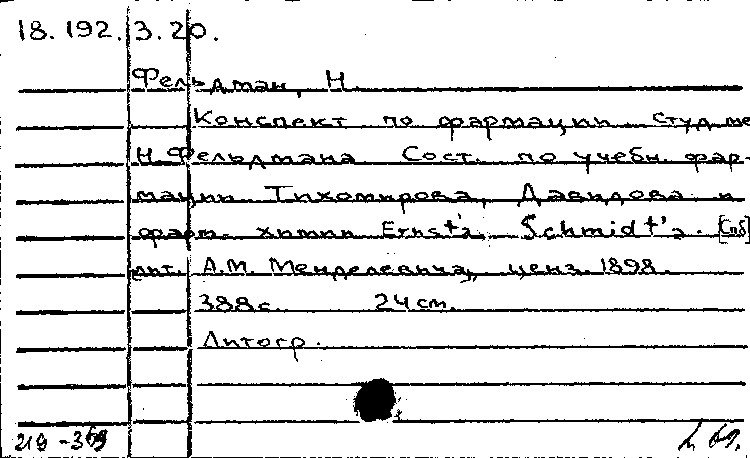 18.192.3.20.
Фельдман, Н.
Конспект по фармации студ. ме
Н. Фельдмана. Сост. по учебн. фар-
мации Тихомирова, Давидова и
фарм. химии Ernst'a Schmidt'a. [Спб]
лит. А.М. Менделевича, ценз. 1898.
388 с. 24 см.
Литогр.
219-369
69.